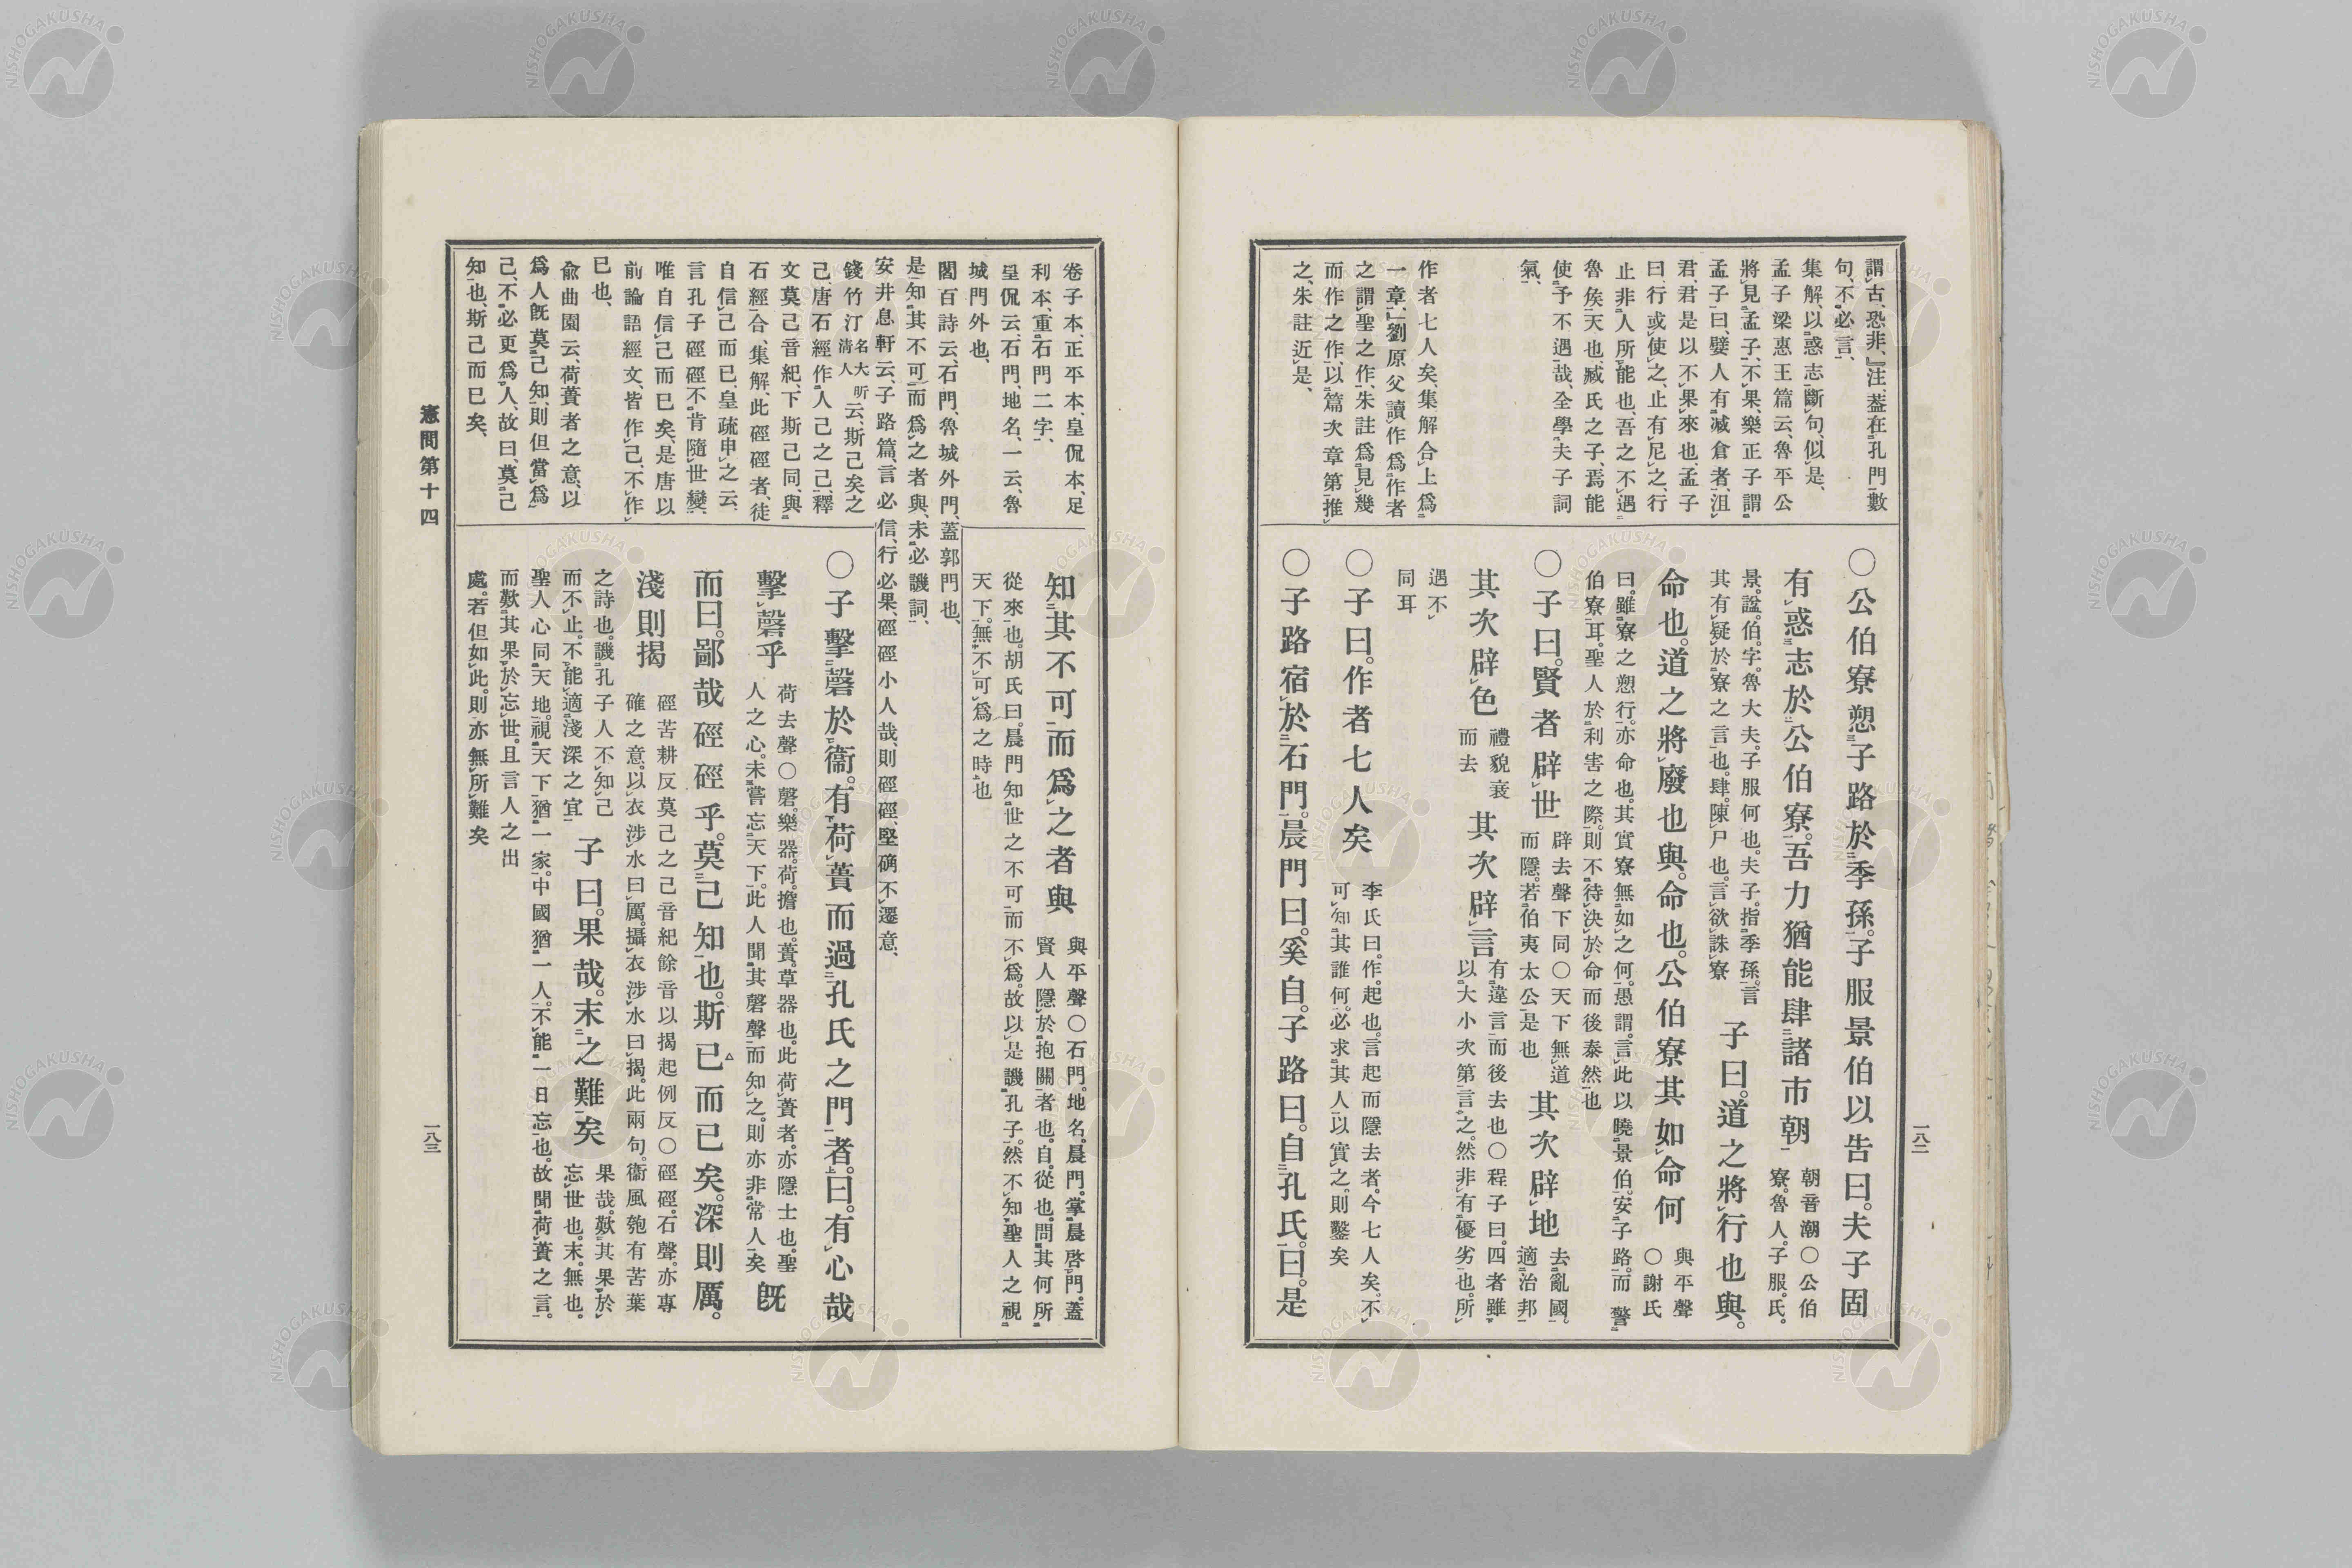 謂古、恐非、注、蓋在孔門數
句、不必言、
集解、以惑志斷句、似是、
孟子梁惠王篇云、魯平公
將見孟子、不果、樂正子謂
孟子曰、嬖人有臧倉者、沮
君、君是以不果來也、孟子
曰、行或使之、止有尼之、行
止非人所能也、吾之不遇
魯矦天也、臧氏之子、焉能
使予不遇哉、全學夫子詞
氣、
作者七人矣、集解合上爲
一章、劉原父讀作爲作者
之謂聖之作、朱註爲見幾
而作之作、以篇次章第推
之、朱註近是、
〇公伯寮愬子路於季孫。子服景伯以告曰。夫子固
有惑志於公伯寮。吾力猶能肆諸市朝
朝音潮〇公伯
寮。魯人。子服。氏。
景。諡。伯。字。魯大夫。子服何也。夫子。指季孫。言
其有疑於寮之言也。肆。陳尸也。言欲誅寮
子曰。道之將行也與。
命也。道之將廢也與。命也。公伯寮其如命何
與平聲
〇謝氏
曰。雖寮之愬行。亦命也。其實寮無如之何。愚謂。言此以曉景伯。安子路。而警
伯寮耳。聖人於利害之際。則不待決於命而後泰然也
〇子曰。賢者辟世
辟去聲下同〇天下無道
而隱。若伯夷太公是也
其次辟地
去亂國。
適治邦
其次辟色
禮貌衰
而去
其次辟言
有違言而後去也〇程子曰。四者雖
以大小次第言之。然非有優劣也。所
遇不
同耳
〇子曰。作者七人矣
李氏曰。作。起也。言起而隱去者。今七人矣。不
可知其誰何。必求其人以實之。則鑿矣
〇子路宿於石門。晨門曰。奚自。子路曰。自孔氏。曰。是
一八二
卷子本、正平本、皇侃本、足
利本、重石門二字、
皇侃云、石門、地名、一云、魯
城門外也、
閻百詩云、石門、魯城外門、蓋郭門也、
是知其不可而爲之者與、未必譏詞、
安井息軒云、子路篇、言必信、行必果、硜硜小人哉、則硜硜、堅确不遷意、
錢竹汀名大昕淸人云、斯己矣之
己、唐石經作人己之己、釋
文莫己音紀、下斯己同、與
石經合、集解、此硜硜者、徒
自信己而已、皇疏申之云、
言孔子硜硜不肯隨世變、
唯自信己而已矣、是唐以
前論語經文、皆作己、不作
已也、
兪曲園云、荷蕢者之意、以
爲人旣莫己知、則但當爲
己、不必更爲人、故曰、莫己
知也、斯己而已矣、
知其不可而爲之者與
與平聲〇石門。地名。晨門。掌晨啓門。蓋
賢人隱於抱關者也。自。從也。問其何所
從來也。胡氏曰。晨門知世之不可而不爲。故以是譏孔子。然不知聖人之視
天下。無不可爲之時也
〇子擊磬於衞。有荷蕢而過孔氏之門者。曰。有心哉
擊磬乎
荷去聲〇磬。樂器。荷。擔也。蕢。草器也。此荷蕢者。亦隱士也。聖
人之心。未嘗忘天下。此人聞其磬聲而知之。則亦非常人矣
旣
而曰。鄙哉硜硜乎。莫己知也。斯已而已矣。深則厲。
淺則揭
硜苦耕反莫己之己音紀餘音以揭起例反〇硜硜。石聲。亦專
確之意。以衣涉水曰厲。攝衣涉水曰揭。此兩句。衞風匏有苦葉
之詩也。譏孔子人不知己
而不止。不能適淺深之宜
子曰。果哉。末之難矣
果哉。歎其果於
忘世也。末。無也。
聖人心同天地。視天下猶一家。中國猶一人。不能一日忘也。故聞荷蕢之言。
而歎其果於忘世。且言人之出
處。若但如此。則亦無所難矣
憲問第十四
一八三